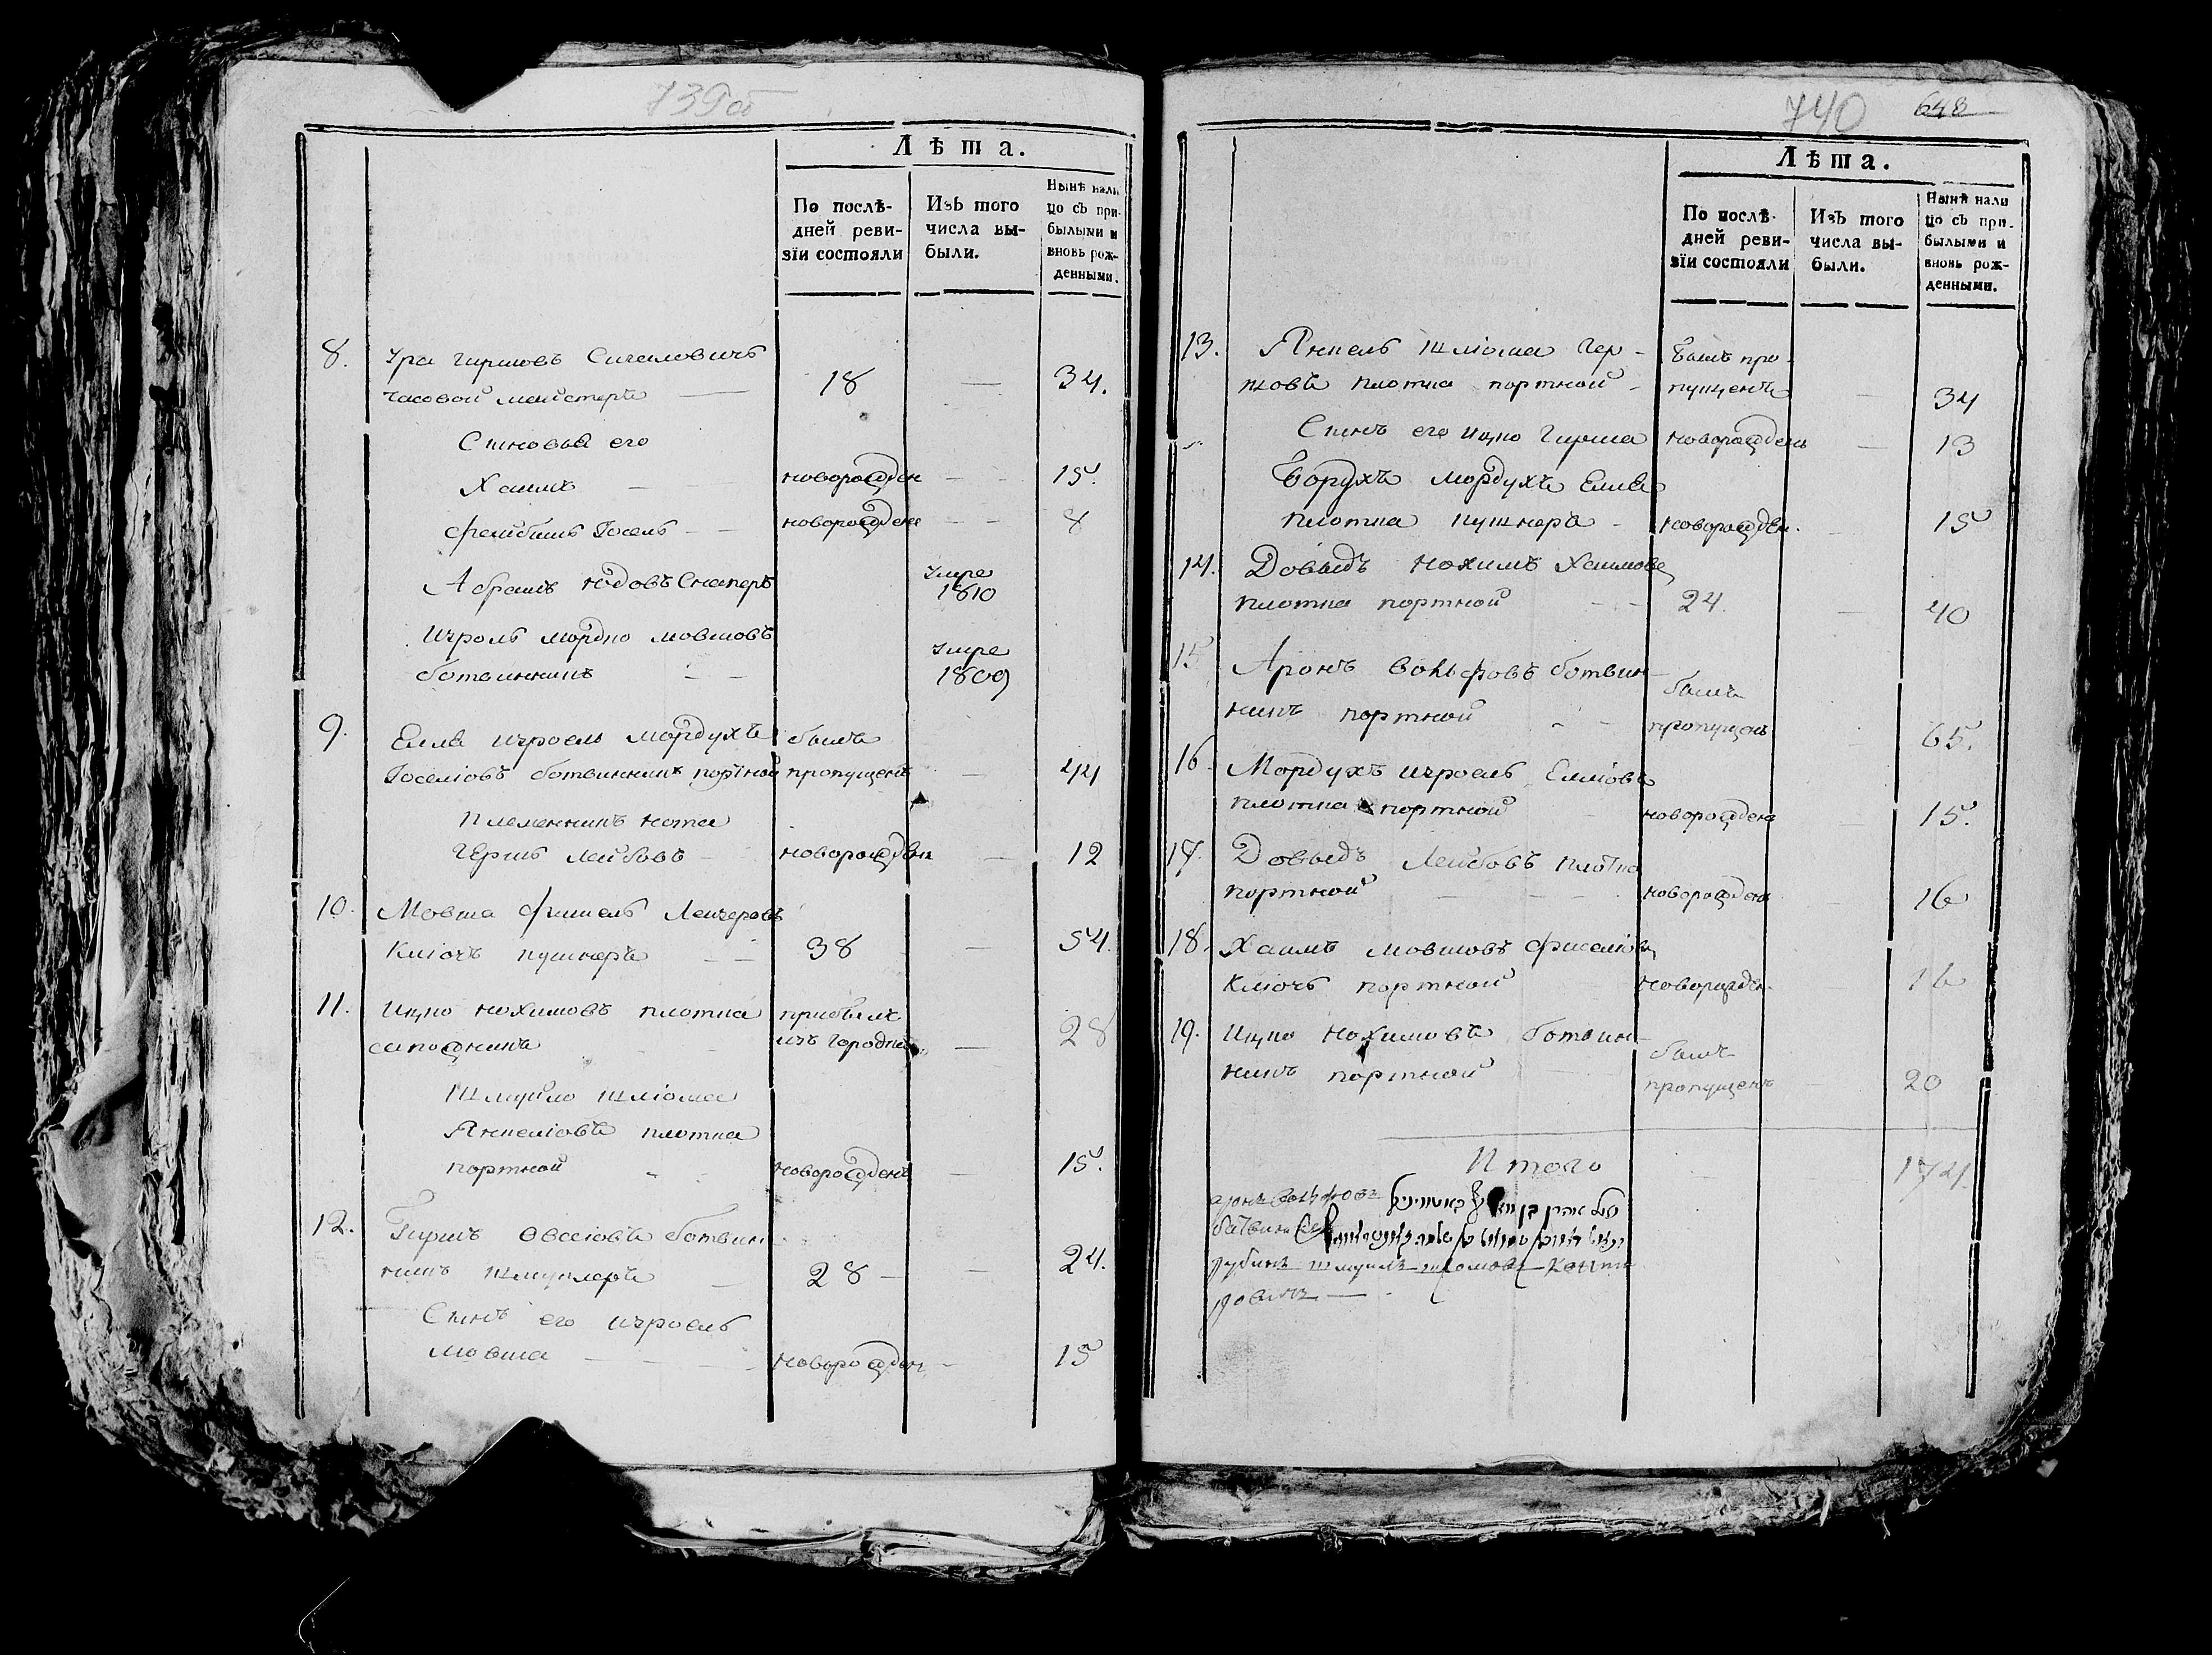 739об
Лѣта.
По послѣ-
дней реви-
зіи состояли
Изъ того
числа вы-
были.
Нынѣ нали
цо съ при-
былыми и
вновь рож-
денными.
8. Ура Гиршовъ
часовой мейстеръ — 18 — 34.
Сыновья его
Хаимъ — новорожден — 15.
Фейбишъ Іосель — новорожден — 8
Абрамъ Юдовъ умре 1810
Изроль Мордко Мовшовъ
ботвинникъ — умре 1809
9. Еиля Изроель Мордухъ былъ
Іоселіовъ ботвинник портной пропущенъ — 44
Племенникъ Нота
Гершъ Лейбовъ — новорожден — 12
10. Мовша Фишель Лейзеровъ
Ключъ пушкаръ — 38 — 54.
11. Ицко Нохимовъ плотка прибылъ
сапожникъ изъ Городка — 28
Шмуйло Шліома
Янкеліовъ плотка
портной новорожденъ — 15.
12. Гиршъ Овсеіовъ ботвин
никъ шмуклеръ — 28 — 24.
Сынъ его Изроель
Мовша — новорожден — 15
740 648
Лѣта.
По послѣ-
дней реви-
зіи состояли
Изъ того
числа вы-
были.
Нынѣ нали
цо съ при-
былыми и
вновь рож-
денными.
13. Янкель Шліома Гер- былъ про-
шовъ плотка портной - пущенъ — 34
Сынъ его Ицко Гирша новорожденъ — 13
Борухъ Мордухъ Еиля
плотка пушкаръ - новорожден. 15
14. Довыдъ Нохимъ Хаимовъ
плотка портной — 24. — 40
15. Аронъ Вольфовъ ботвин-
никъ портной былъ пропущенъ 65.
16. Мордухъ Изроель Еиліовъ
плотка портной новорожденъ 15.
17. Довыдъ Лейбовъ плотка
портной — новорожденъ 16
18. Хаимъ Мовшовъ Фиселіовъ
Ключъ портной новорожден. 16
19. Ицко Нохимовъ ботвин-
никъ портной былъ пропущенъ 20
Итого 174.
аронъ Вольфовъ
рубинъ шмуилъ